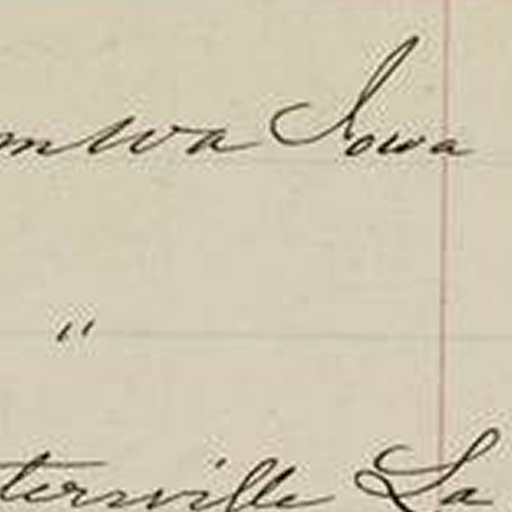 mwa Iowa
"
tersville La